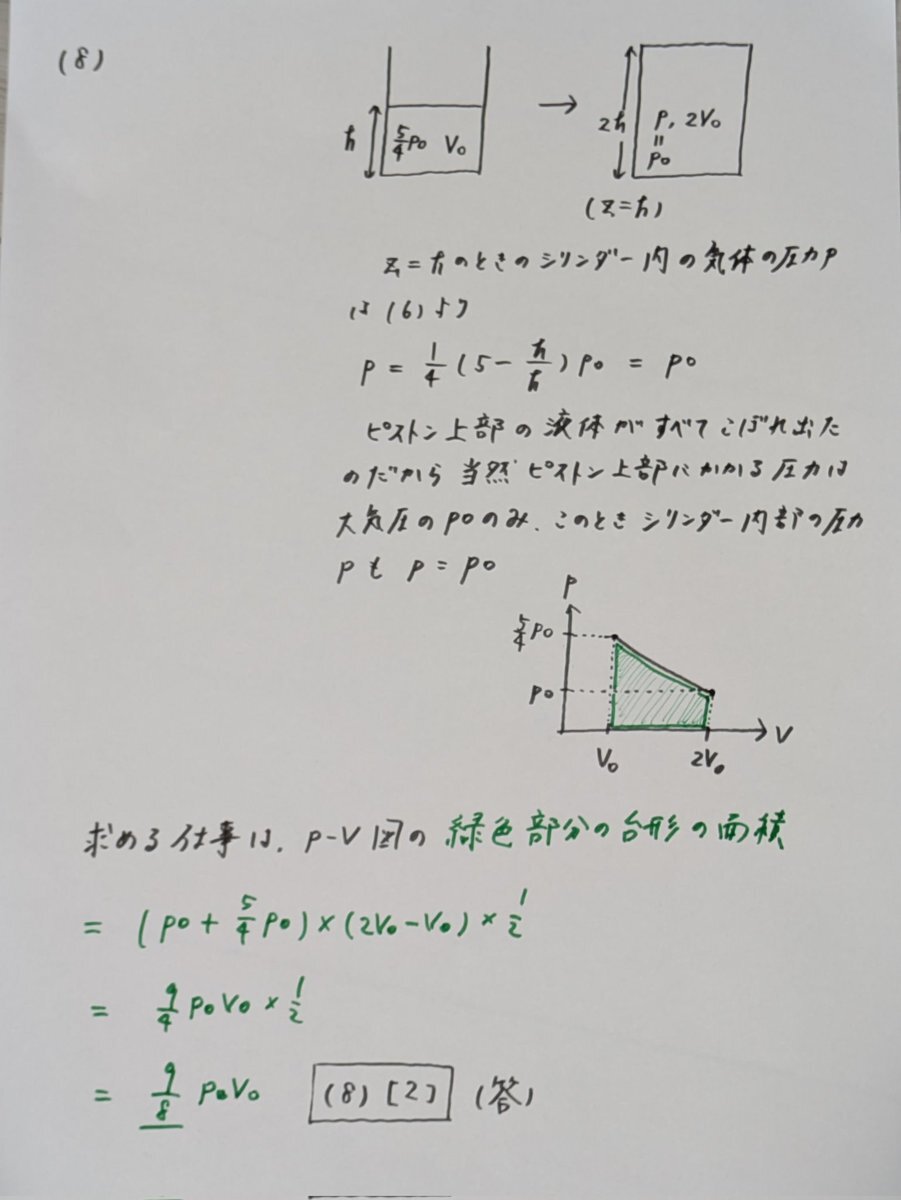 (8)
h 5/4 p0 V0 → 2h p, 2V0
=
p0
(z=h)
z=hのときのシリンダー内の気体の圧力p
は(6)より
p = 1/4 (5 - h/h) p0 = p0
ピストン上部の液体がすべてこぼれ出た
のだから当然ピストン上部にかかる圧力は
大気圧のp0のみ、このときシリンダー内部の圧力
pも p = p0
p
5/4 p0
p0
V0 2V0 V
求める仕事は、p-V図の緑色部分の台形の面積
= (p0 + 5/4 p0) × (2V0 - V0) × 1/2
= 9/4 p0V0 × 1/2
= 9/8 p0V0 (8) [2] (答)